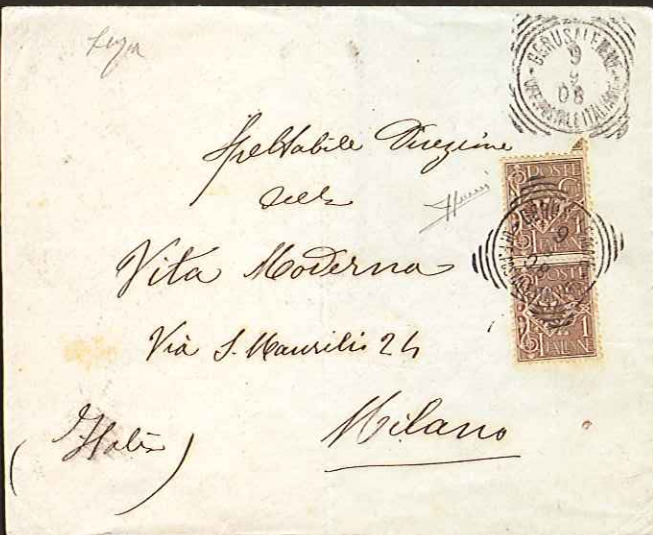 GERUSALEMME
9
9
08
UFF. POSTALE ITALIANO
Spettabile Direzione
della
Vita Moderna
Via S. Maurilio 24
Milano
(Italia)
POSTE
C. 1
ITALIANE
POSTE
1
ITALIANE